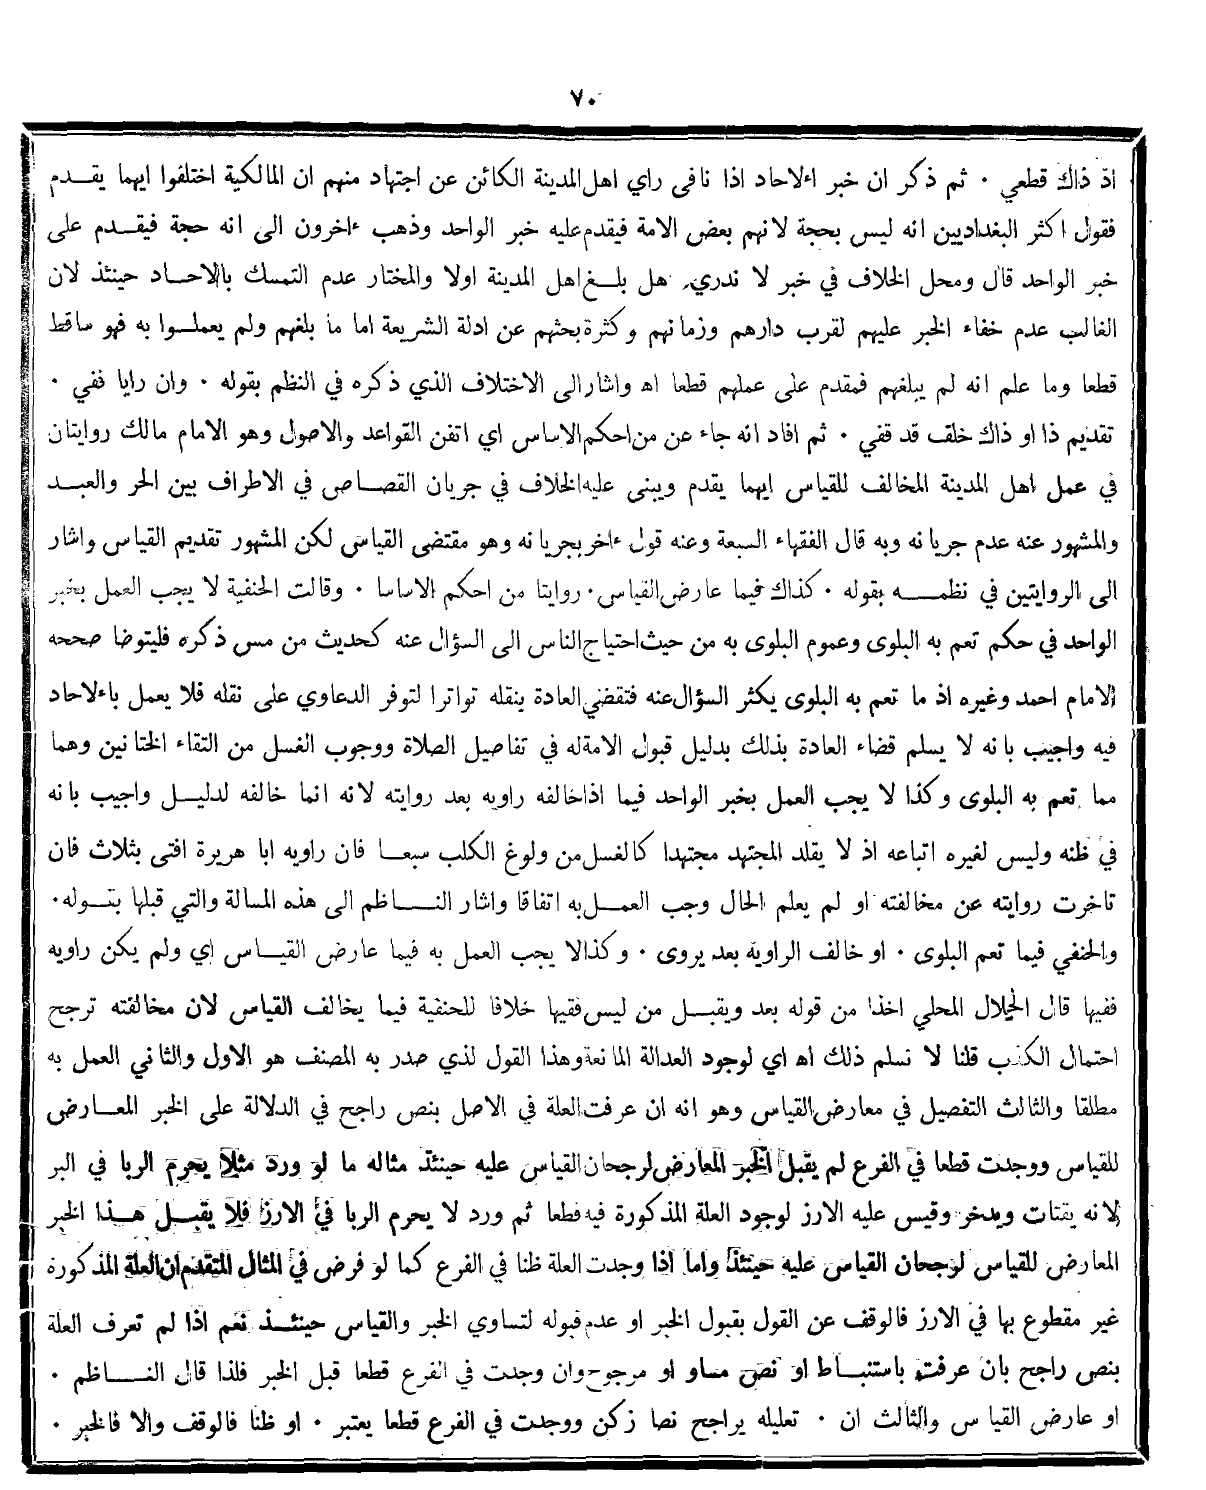 ٧٠
اذ ذاك قطعي ٠ ثم ذكر ان خبر اءلاحاد اذا نافى راي اهل المدينة الكائن عن اجتهاد منهم ان المالكية اختلفوا ايهما يقدم
فقول اكثر البغداديين انه ليس بحجة لانهم بعض الامة فيقدم عليه خبر الواحد وذهب ءاخرون الى انه حجة فيقدم على
خبر الواحد قال ومحل الخلاف في خبر لا ندري هل بلغ اهل المدينة اولا والمختار عدم التمسك بالاحاد حينئذ لان
الغالب عدم خفاء الخبر عليهم لقرب دارهم وزمانهم وكثرة بحثهم عن ادلة الشريعة اما ما بلغهم ولم يعملوا به فهو ساقط
قطعا وما علم انه لم يبلغهم فمقدم على عملهم قطعا اه واشار الى الاختلاف الذي ذكره في النظم بقوله ٠ وان رايا ففي ٠
تقديم ذا او ذاك خلف قد قفي ٠ ثم افاد انه جاء عن من احكم الاساس اي اتقن القواعد والاصول وهو الامام مالك روايتان
في عمل اهل المدينة المخالف للقياس ايهما يقدم ويبنى عليه الخلاف في جريان القصاص في الاطراف بين الحر والعبد
والمشهور عنه عدم جريانه وبه قال الفقهاء السبعة وعنه قول ءاخر بجريانه وهو مقتضى القياس لكن المشهور تقديم القياس واشار
الى الروايتين في نظمه بقوله ٠ كذاك فيما عارض القياس ٠ روايتا من احكم الاساسا ٠ وقالت الحنفية لا يجب العمل بخبر
الواحد في حكم تعم به البلوى وعموم البلوى به من حيث احتياج الناس الى السؤال عنه كحديث من مس ذكره فليتوضا صححه
الامام احمد وغيره اذ ما تعم به البلوى يكثر السؤال عنه فتقضي العادة بنقله تواترا لتوفر الدعاوي على نقله فلا يعمل باءلاحاد
فيه واجيب بانه لا يسلم قضاء العادة بذلك بدليل قبول الامة له في تفاصيل الصلاة ووجوب الغسل من التقاء الختانين وهما
مما تعم به البلوى وكذا لا يجب العمل بخبر الواحد فيما اذا خالفه راويه بعد روايته لانه انما خالفه لدليل واجيب بانه
في ظنه وليس لغيره اتباعه اذ لا يقلد المجتهد مجتهدا كالغسل من ولوغ الكلب سبعا فان راويه ابا هريرة افتى بثلاث فان
تاخرت روايته عن مخالفته او لم يعلم الحال وجب العمل به اتفاقا واشار الناظم الى هذه المسالة والتي قبلها بقوله ٠
والحنفي فيما تعم البلوى ٠ او خالف الراويه بعد يروى ٠ وكذالا يجب العمل به فيما عارض القياس اي ولم يكن راويه
فقيها قال الجلال المحلي اخذا من قوله بعد ويقبل من ليس فقيها خلافا للحنفية فيما يخالف القياس لان مخالفته ترجح
احتمال الكذب قلنا لا نسلم ذلك اه اي لوجود العدالة المانعة وهذا القول لذي صدر به المصنف هو الاول والثاني العمل به
مطلقا والثالث التفصيل في معارض القياس وهو انه ان عرفت العلة في الاصل بنص راجح في الدلالة على الخبر المعارض
للقياس ووجدت قطعا في الفرع لم يقبل الخبر المعارض لرجحان القياس عليه حينئذ مثاله ما لو ورد مثلا يحرم الربا في البر
لانه يقتات ويدخر وقيس عليه الارز لوجود العلة المذكورة فيه قطعا ثم ورد لا يحرم الربا في الارز فلا يقبل هذا الخبر
المعارض للقياس لرجحان القياس عليه حينئذ واما اذا وجدت العلة ظنا في الفرع كما لو فرض في المثال المتقدم ان العلة المذكورة
غير مقطوع بها في الارز فالوقف عن القول بقبول الخبر او عدم قبوله لتساوي الخبر والقياس حينئذ نعم اذا لم تعرف العلة
بنص راجح بان عرفت باستنباط او نص مساو او مرجوح وان وجدت في الفرع قطعا قبل الخبر فلذا قال الناظم ٠
او عارض القياس والثالث ان ٠ تعليله براجح نصا زكن ووجدت في الفرع قطعا يعتبر ٠ او ظنا فالوقف والا فالخبر ٠